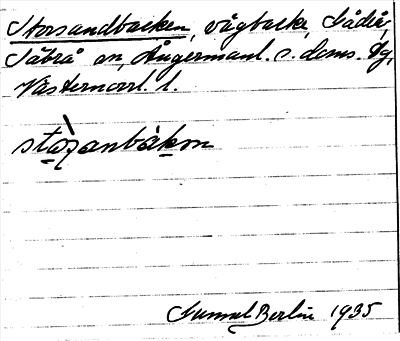 Storsandbacken, vågbacke, Sådür,
Säbrå sn, Ångermanl. s. doms. dg,
Västernorrl. l.
stọʒanbàkən
Gunnel Berlin 1935